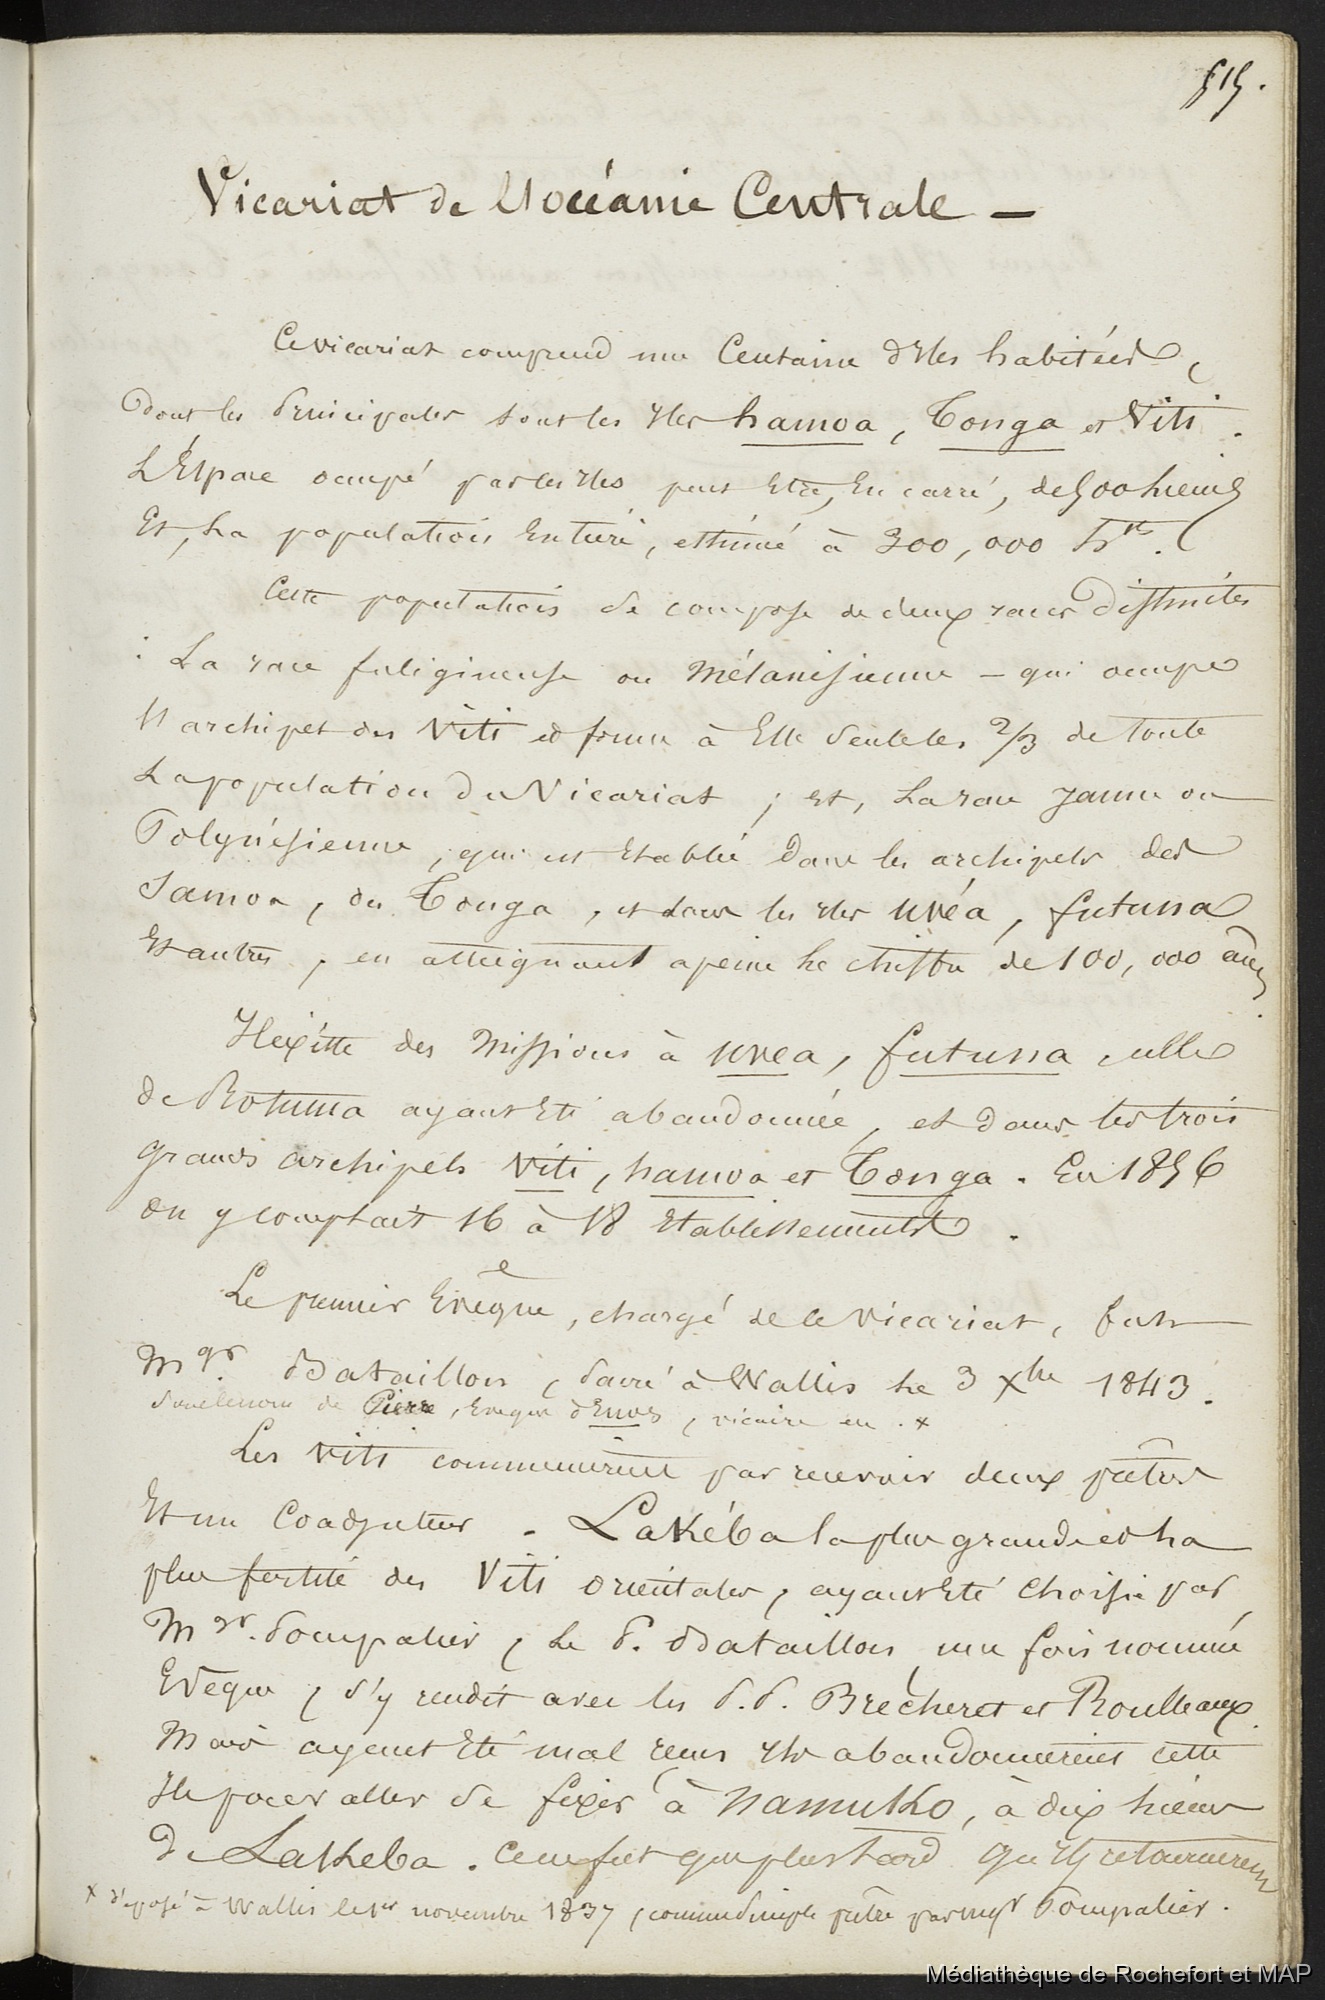 515.
Vicariat de l'océanie Centrale —
Ce vicariat comprend une Centaine d'Iles habitées,
dont les principales sont les Iles hamoa, Tonga et Viti.
L'Espace occupé par les Iles peut Etre, En carré, de 500 lieues
Et, La population Entière, estimée à 300,000 hts.
Cette population se compose de deux races distinctes
: La race fuligineuse ou Mélanisienne – qui occupe
l'archipel des Viti et forme à Elle seule les 2/3 de toute
La population du Vicariat ; et, La race Jaune ou
Polynésienne, qui est Etablie dans les archipels des
Samoa, de Tonga, et dans les Iles uvéa, futuna
Et autres, en atteignant a peine le chiffre de 100,000 âmes.
Il existe des Missions à uvea, futuna celle
de Rotuma ayant Eté abandonnée, et dans les trois
grands archipels Viti, hamoa et Tonga. En 1856
on y comptait 16 à 18 Etablissements.
Le premier Evêque, chargé de ce vicariat, fut
Mgr. Bataillon, sacré à Wallis le 3 Xbre 1843.
sous le nom de Pierre, Eveque d'Enos, vicaire en . x
Les Viti commencèrent par recevoir deux prêtres
Et un Coadjuteur. Lakéba la plus grande et la
plus fertile des Viti orientales, ayant Eté choisie par
Mgr. Pompalier, le P. Bataillon une fois nommé
Evêque, s'y rendit avec les P.P. Brécheret et Roulleaux.
Mais ayant Eté mal reçus Ils abandonnerent cette
Ile pour aller se fixer à Namuko, à dix lieues
de Lakeba. Ce ne fut que plus tard qu'Ils retournerent
x déposé à Wallis le 1er novembre 1837, comme simple prêtre par Mgr Pompalier.
Médiathèque de Rochefort et MAP